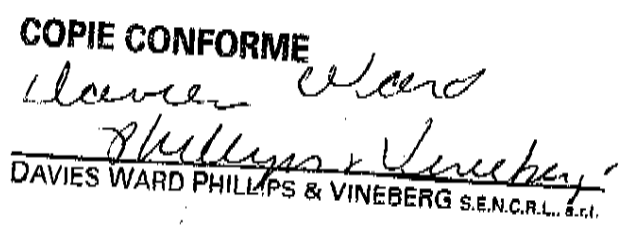 COPIE CONFORME
Davies Ward
Phillips & Vineberg
DAVIES WARD PHILLIPS & VINEBERG S.E.N.C.R.L., s.r.l.